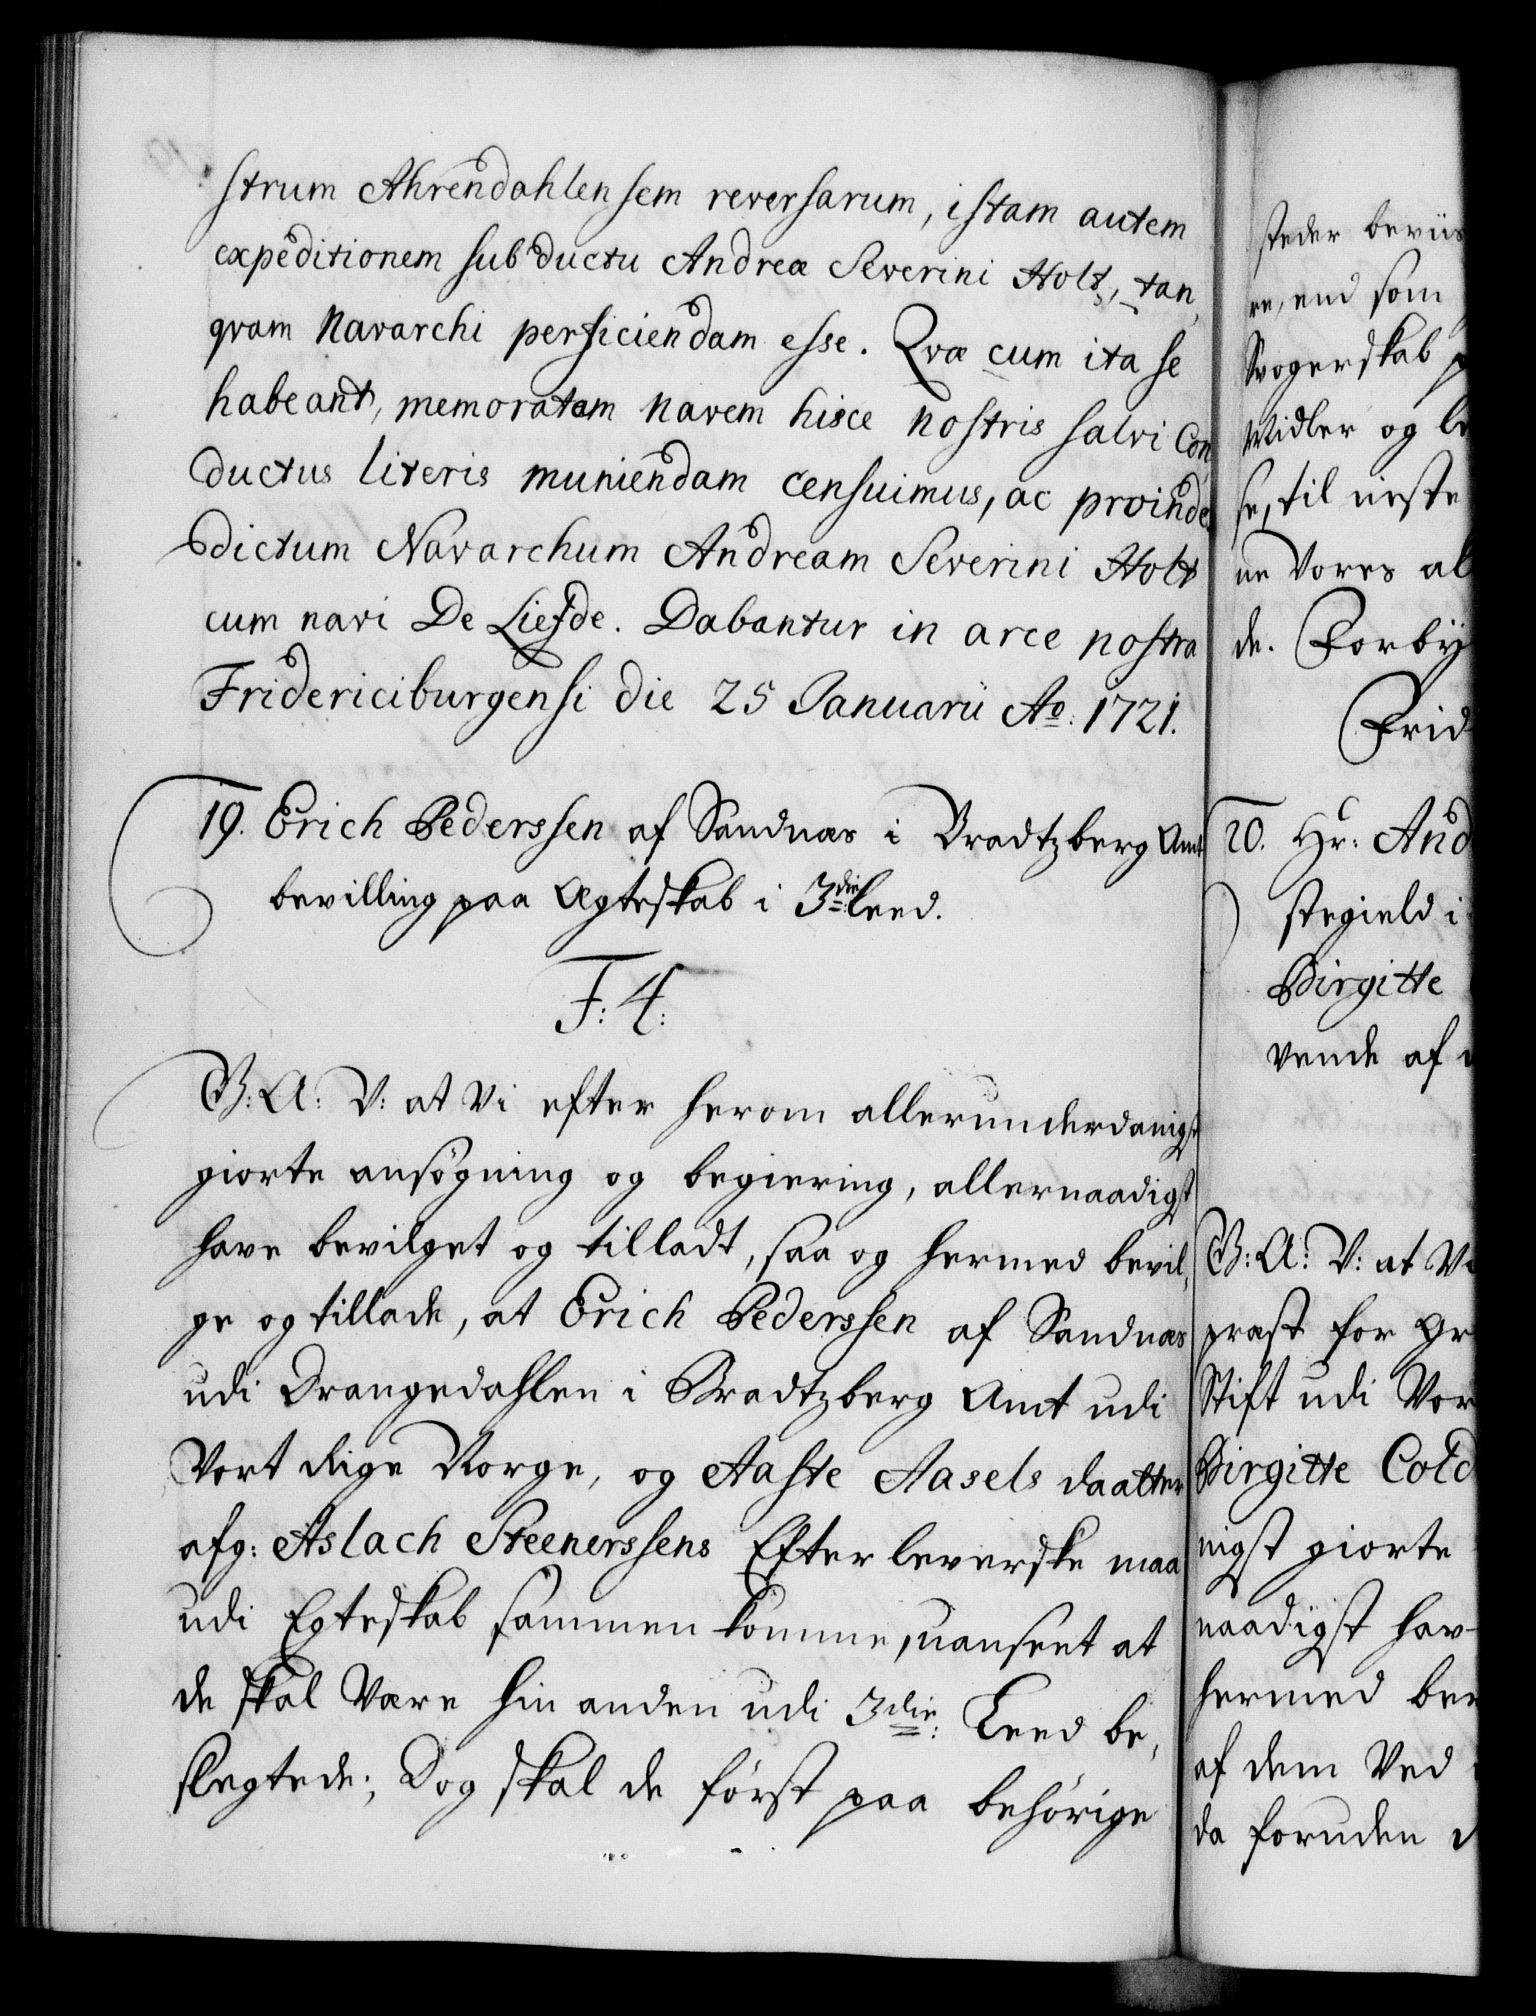 strum Ahrendahlensem reversarum, istam autem
expeditionem sub ductu Andreæ Severini Holt, tan,
qvam Navarchi perficiendam esse. Qvæ cum ita se
habeant, memoratam navem hisce nostris salvi Con
ductus literis muniendam censuimus, ac proinde
dictum Navarchum Andream Severini Holt
cum navi De Liefde. Dabantur in arce nostra
Fridericiburgensi die 25 Januarii Ao: 1721.
19. Erich Pederssen af Sandnæs i Bradtzberg Amt
bevilling paa Ægteskab i 3die leed.
F: 4:
G: A: V: at Vi efter herom allerunderdanigst
giorte ansøgning og begiering, allernaadigst
have bevilget og tilladt, saa og hermed bevil,
ge og tillade, at Erich Pederssen af Sandnæs
udi Drangedahlen i Bradtzberg Amt udi
Vort Rige Norge, og Aaste Aasels daatter
afg: Aslach Steenerssens Efterleverske maa
udi Egteskab sammen komme, uanseet at
de skal Være hin anden udi 3die: Leed be,
slegtede; Dog skal de først paa behørige
steder beviis
re, end som
Svogerskab
Midler og
se, til neste
ne Vores al
de. Forby
Frid
20. Hr: And
stegield i
Birgitte
vende af
G: A: V: at Vi
præst for Hr
Stift udi Vor
Birgitte Cold
nigst giorte
naadigst hav
hermed bev
af dem Ved
da foruden